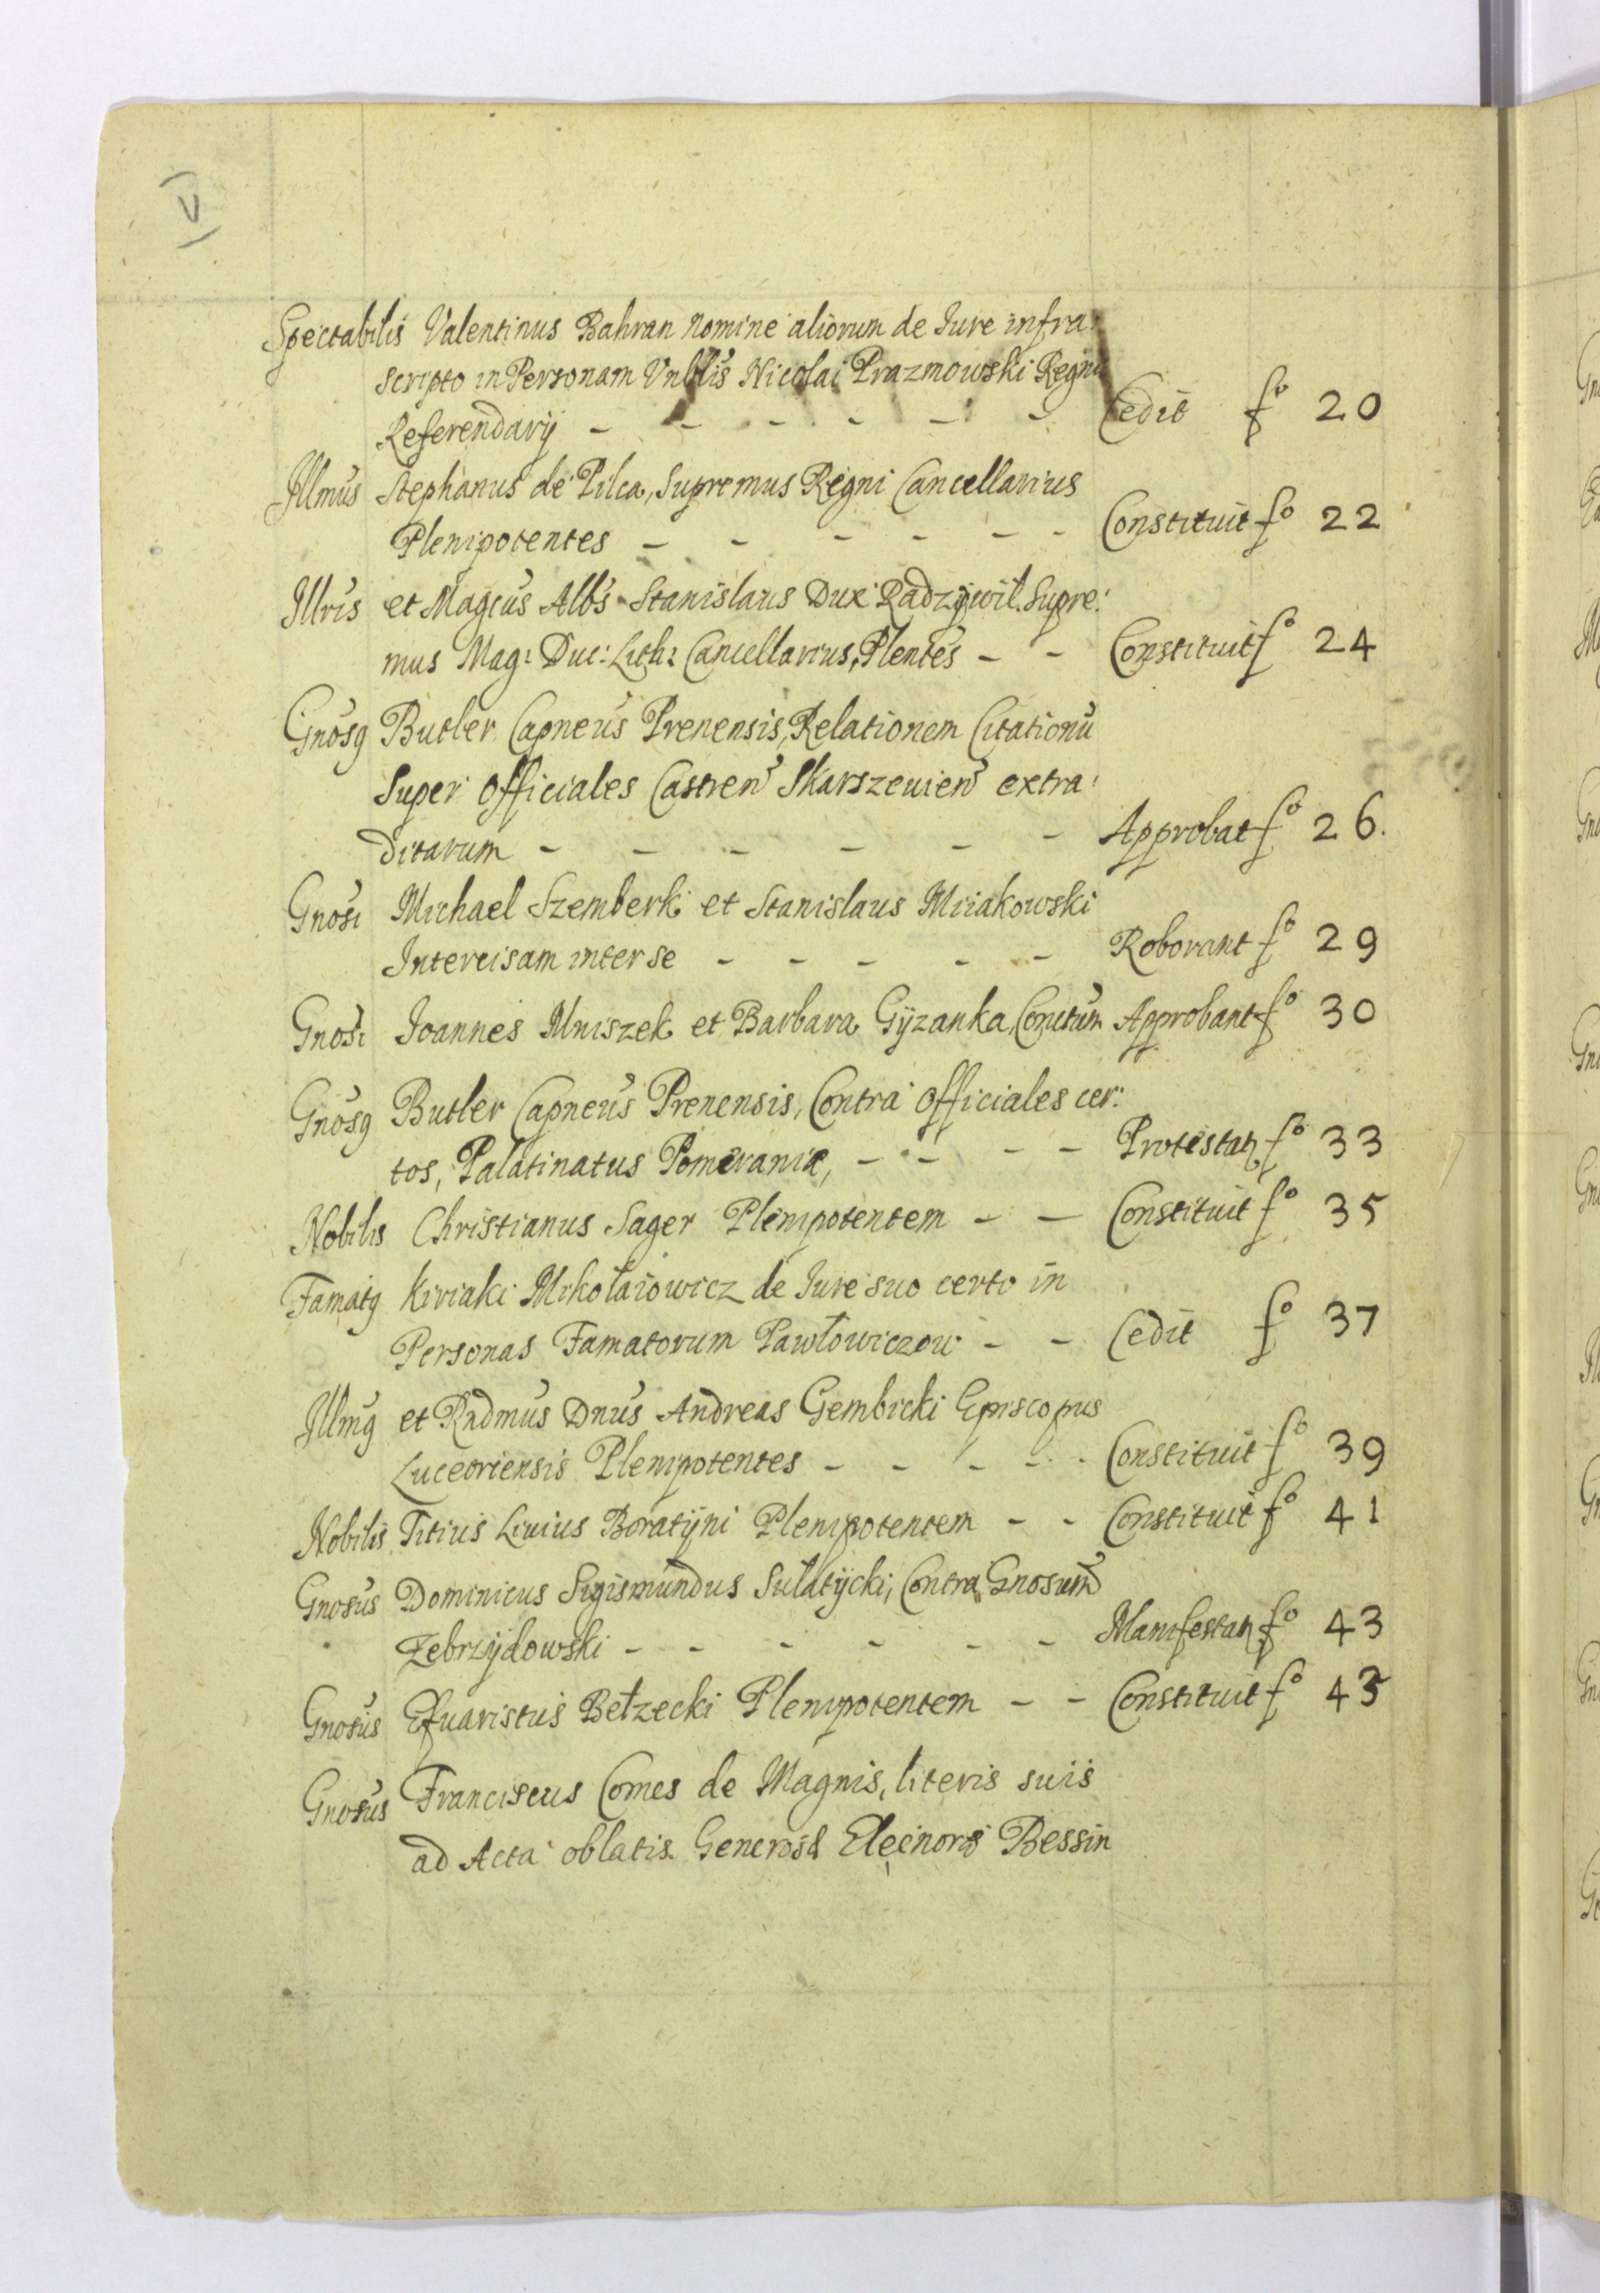 V
Spectabilis Valentinus Bahran nomine aliorum de Jure infra:
scripto in Personam Vnblis Nicolai Prazmowski Regni
Referendarij - - - - - - Cedit fo 20
Jllmus Stephanus de Pilca, Supremus Regni Cancellarius
Plenipotentes - - - - - - Constituit fo 22
Jllris et Magcus Albs Stanislaus Dux Radzywil Supre:
mus Mag: Duc: Lith: Cancellarius, Plentes - - Constituit fo 24
Gnosg Butler Capneus Prenensis, Relationem Citationu
Super Officiales Castren Skarszewien extra:
ditarum - - - - - - Approbat fo 26.
Gnosi Michael Szemberk et Stanislaus Miiakowski
Intercisam inter se - - - - - Roborant fo 29
Gnosi Joannes Mniszek et Barbara Gÿzanka, Conctum Approbant fo 30
Gnosg Butler Capneus Prenensis, Contra Officiales cer:
tos, Palatinatus Pomeraniæ, - - - - Protestatz fo 33
Nobilis Christianus Sager Plenipotentem - - Constituit fo 35
Famatg Kiriaki Mikołaiowicz de Jure suo certo in
Personas Famatorum Pawłowiczow - - Cedit fo 37
Jllmg et Rndmus Dnus Andreas Gembicki Episcopus
Luceoriensis Plenipotentes - - - - - Constituit fo 39
Nobilis Titius Liuius Boratÿni Plenipotentem - - Constituit fo 41
Gnosus Dominicus Sigismundus Sulatÿcki, Contra Gnosum
Zebrzÿdowski - - - - - - Manifestatz fo 43
Gnosus Efuaristus Bełzecki Plenipotentem - - Constituit fo 45
Gnosus Franciscus Comes de Magnis, literis suis
ad Acta oblatis Generosæ Eleinoræ Bessin